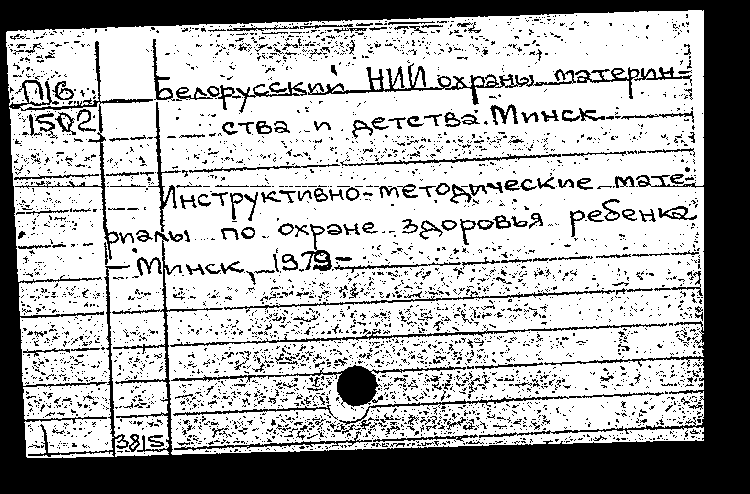 П16
1502
Белорусский НИИ охраны материн-
ства и детства. Минск
Инструктивно-методические мате-
риалы по охране здоровья ребенка
- Минск, 1979-
3815